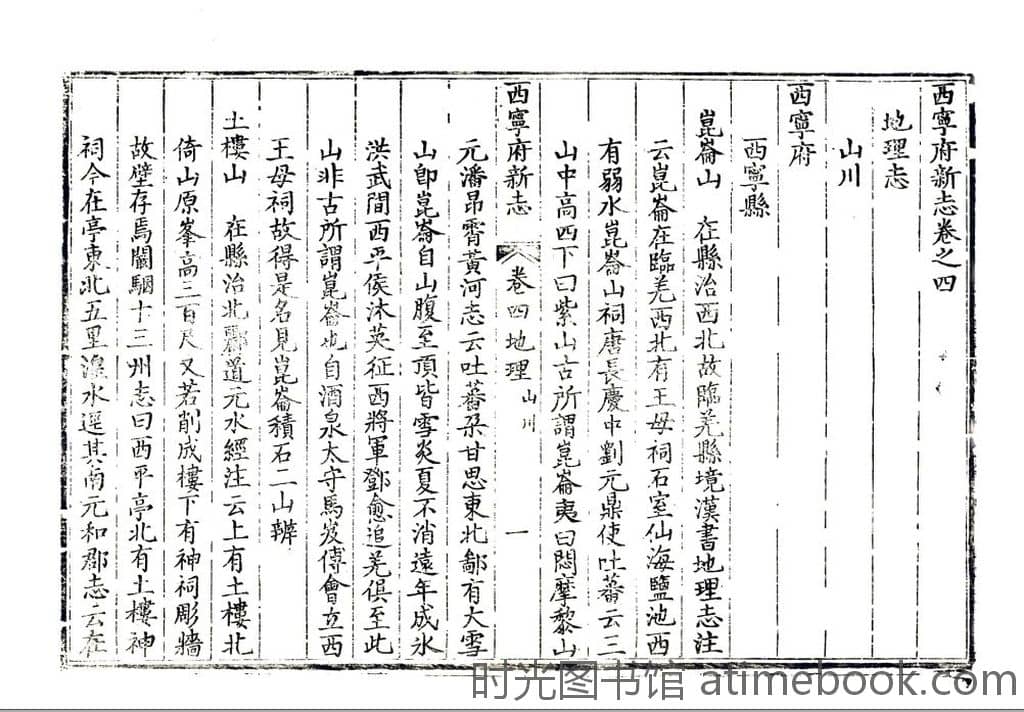 西寧府新志卷之四
地理志
山川
西寧府
西寧縣
崑崙山　在縣治西北故臨羌縣境漢書地理志注
云崑崙在臨羌西北有王母祠石室仙海鹽池西
有弱水崑崙山祠唐長慶中劉元鼎使吐蕃云三
山中高四下曰紫山古所謂崑崙夷曰悶摩黎山
西寧府新志　卷四地理　山川　一
元潘昂霄黃河志云吐蕃朶甘思東北鄙有大雪
山卽崑崙自山腹至頂皆雪炎夏不消遠年成氷
洪武間西平侯沐英征西將軍鄧愈追羌俱至此
山非古所謂崑崙也自酒泉太守馬岌傅會立西
王母祠故得是名見崑崙積石二山辨
土樓山　在縣治北酈道元水經注云上有土樓北
倚山原峯高三百尺又若削成樓下有神祠彫牆
故壁存焉闞駰十三州志曰西平亭北有土樓神
祠今在亭東北五里湟水逕其南元和郡志云在
时光图书馆 atimebook.com